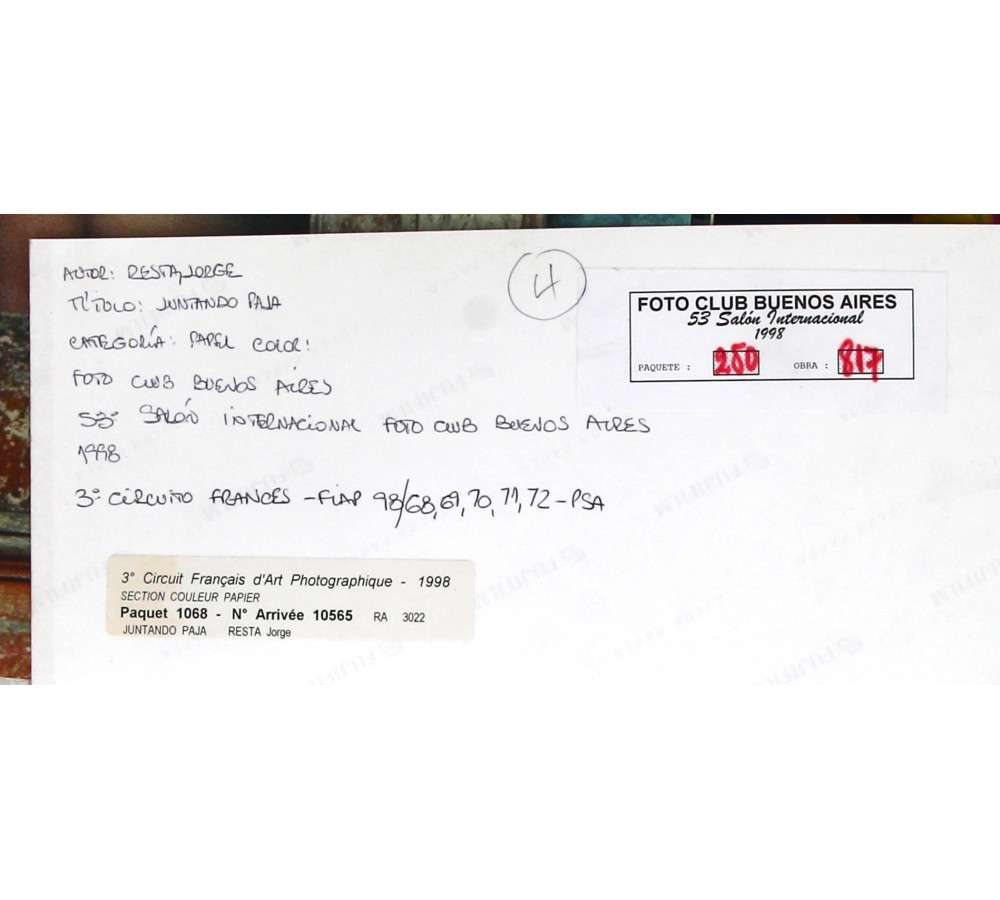 AUTOR: RESTA, JORGE
TÍTOLO: JUNTANDO PAJA
CATEGORÍA: PAPEL COLOR:
FOTO CLUB BUENOS AIRES
53° SALÓN INTERNACIONAL FOTO CLUB BUENOS AIRES
1998
3° CIRCUITO FRANCES - FIAP 98/68, 69, 70, 71, 72 - PSA
4
FOTO CLUB BUENOS AIRES
53 Salón Internacional
1998
PAQUETE : 260 OBRA : 817
3° Circuit Français d'Art Photographique - 1998
SECTION COULEUR PAPIER
Paquet 1068 - N° Arrivée 10565 RA 3022
JUNTANDO PAJA RESTA Jorge